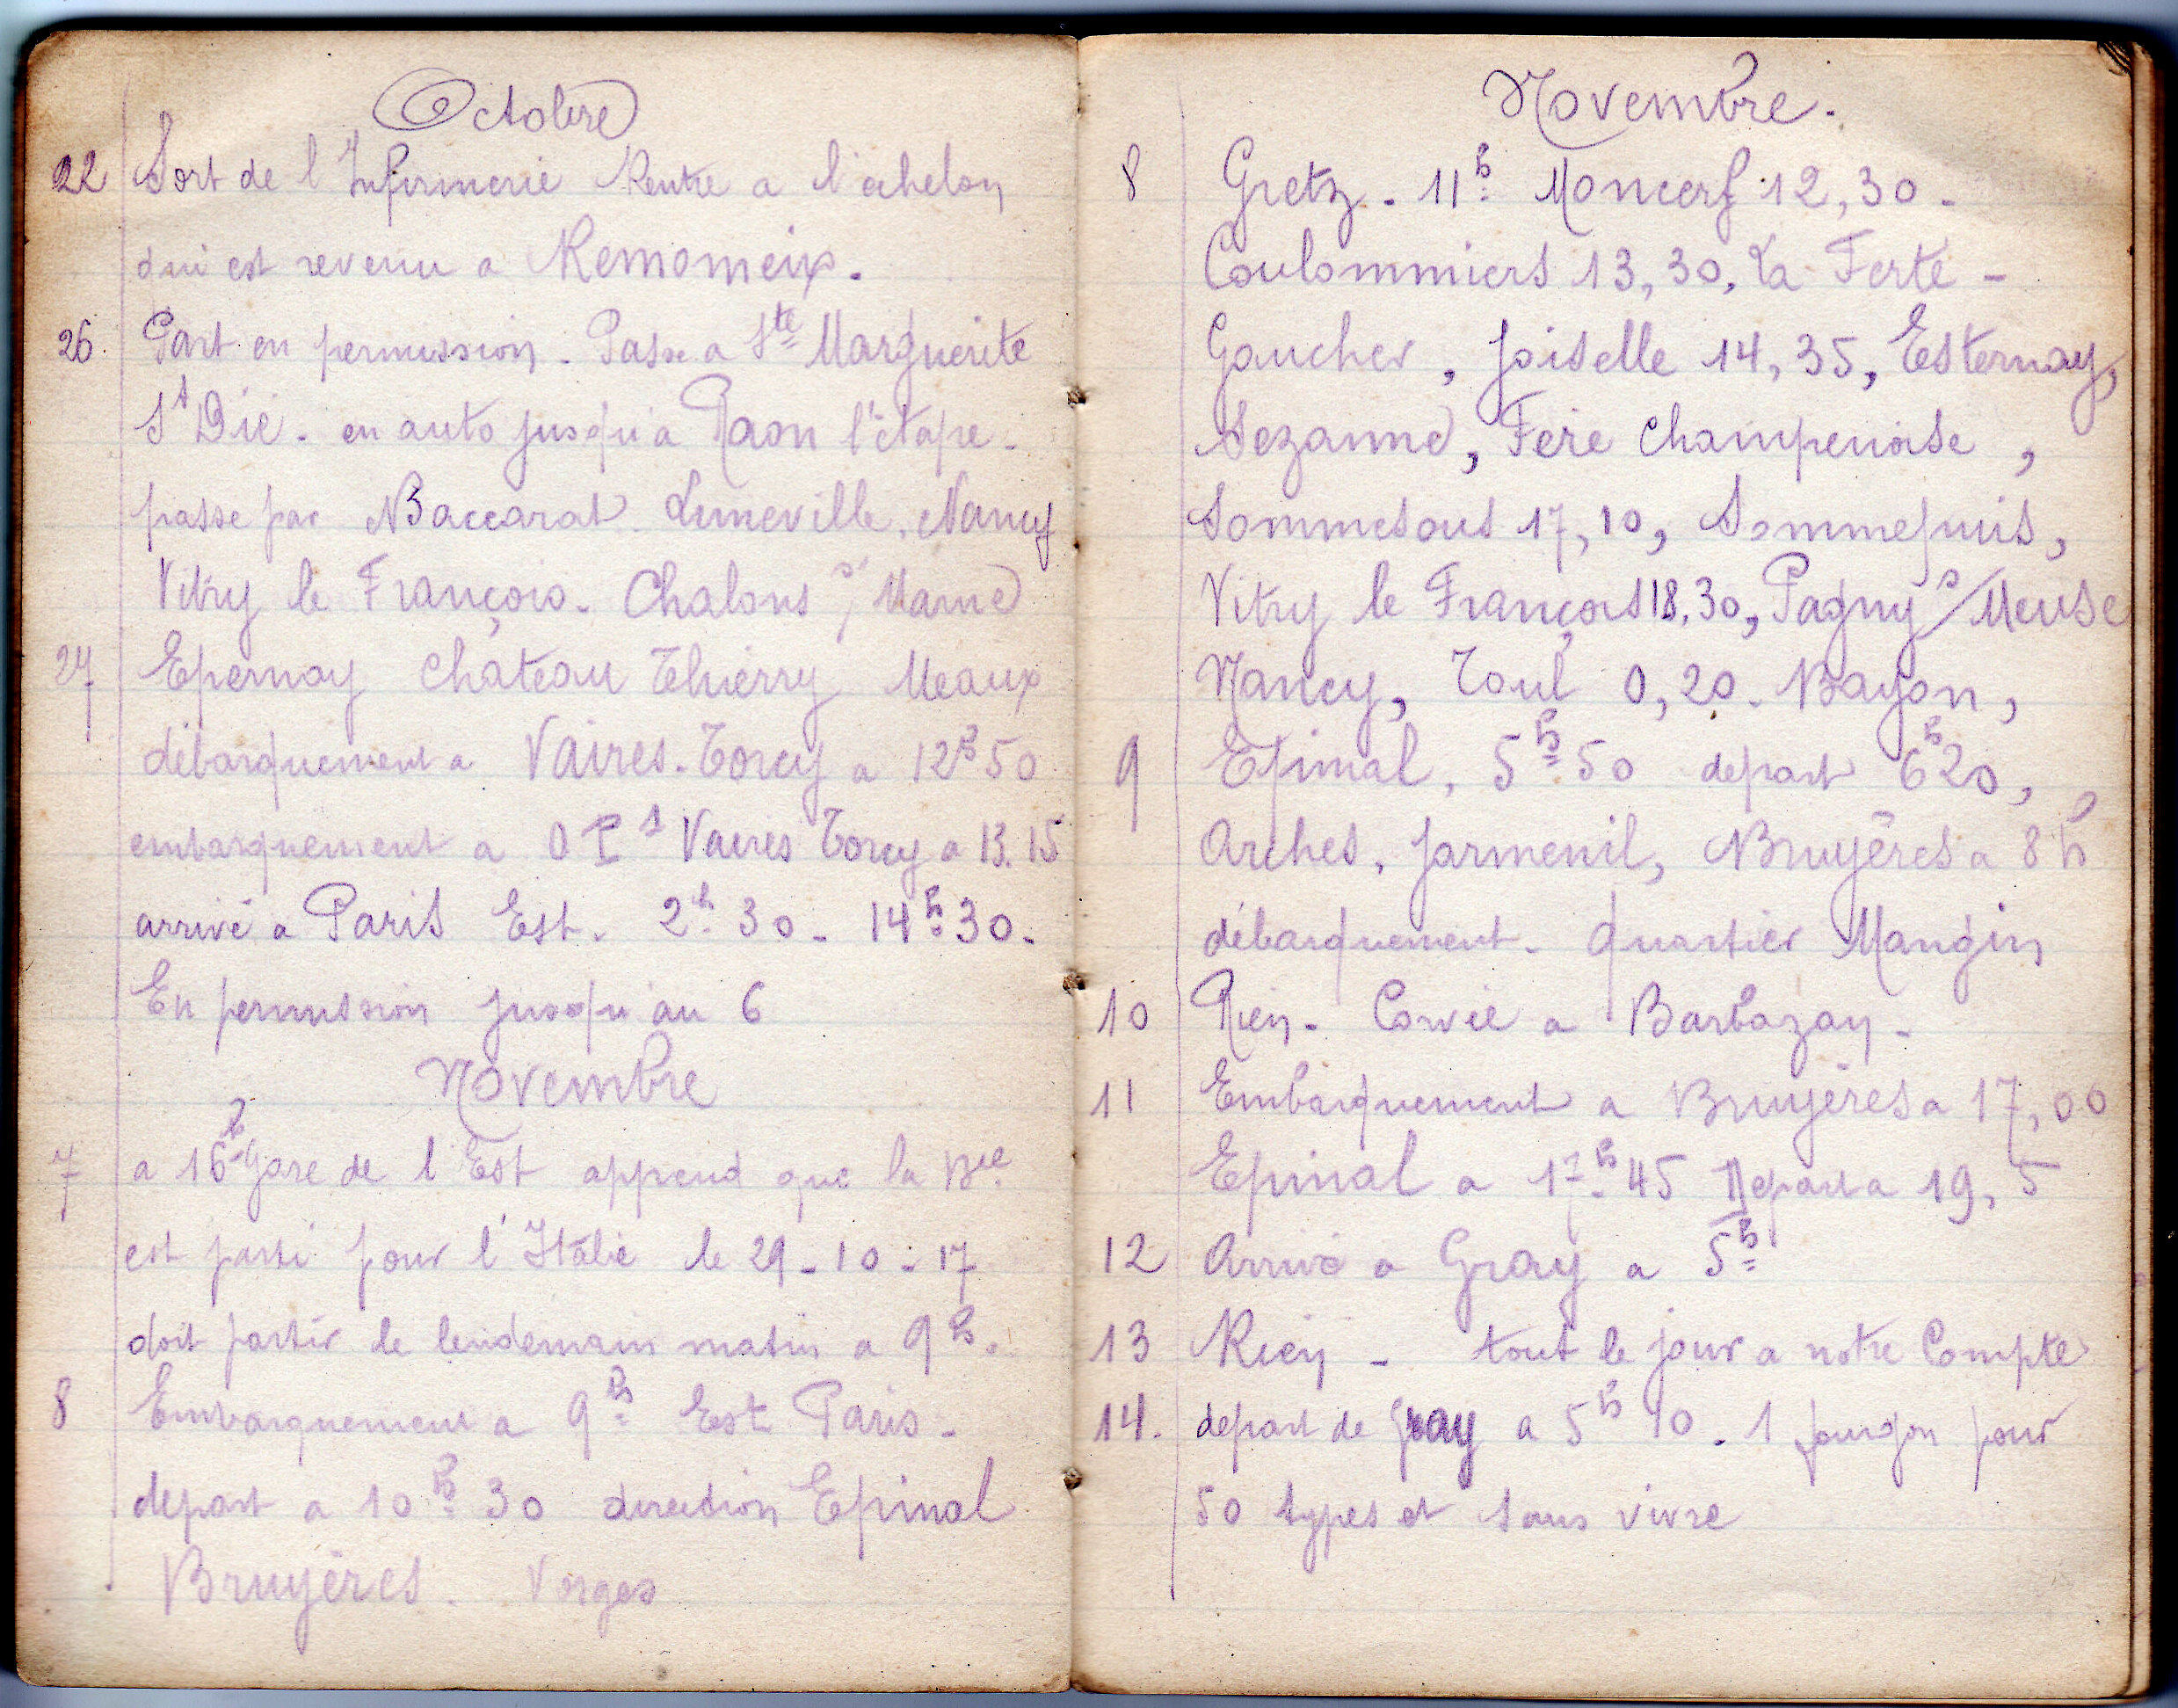 Octobre
22 Sort de l'Infirmerie Rentre a l'échelon
qui est revenu a Remomeix.
26. Part en permission. Passe a Ste Marguerite
St Dié. en auto jusqu'a Raon l'étape.
passe par Baccarat. Luneville. Nancy
Vitry le François. Chalons s/ Marne
27 Epernay Chateau Thierry Meaux
débarquement a Vaires-Torcy a 12h50
embarquement a Vaires Torcy a 13.15
arrivé a Paris Est. 2h30 - 14h30.
En permission jusqu'au 6
Novembre
7 a 16h Gare de l'Est apprend que la Bie
est parti pour l'Italie le 29-10-17
doit partir le lendemain matin a 9h.
8 Embarquement a 9h Est Paris.
depart a 10h30 direction Epinal
Bruyères. Vosges
Novembre.
8 Gretz. 11h Moncerf 12,30 -
Coulommiers 13,30, La Ferte -
Gaucher, Joiselle 14,35, Esternay,
Sezanne, Fère Champenoise,
Sommesous 17,10, Sommepuis,
Vitry le François 18,30, Pagny s/Meuse
Nancy, Toul 0,20. Bayon,
9 Epinal, 5h50 depart 6h20,
Arches, Jarmenil, Bruyères a 8h
débarquement. quartier Mangin
10 Rien. Corvée a Barbazan -
11 Embarquement a Bruyères a 17,00
Epinal a 17h45 Depart a 19,5
12 Arrivé a Gray a 5h
13 Rien - tout le jour a notre Compte
14. depart de Gray a 5h10. 1 fourgon pour
50 types et sans vivre